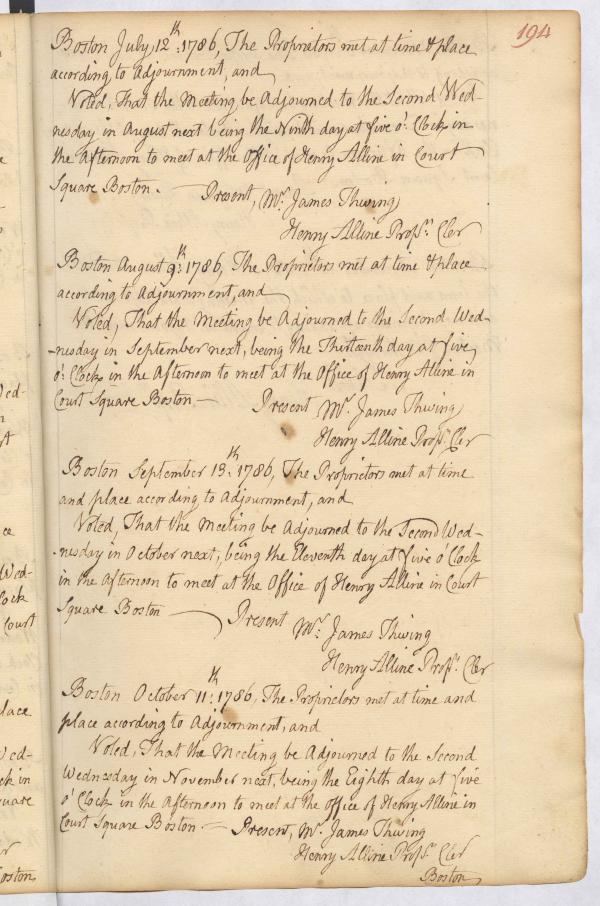 194
Boston July 12th: 1786, The Proprietors met at time & place
according to Adjournment, and
Voted, That the Meeting be Adjourned to the Second Wed-
nesday in August next being the Ninth day at five o': Clock in
the Afternoon to meet at the Office of Henry Alline in Court
Square Boston. - Present, Mr. James Thwing
Henry Alline Propsrs. Cler
Boston August 9th: 1786, The Proprietors met at time & place
according to Adjournment, and
Voted, That the Meeting be Adjourned to the Second Wed-
-nesday in September next, being the Thirteenth day at five
o': Clock in the Afternoon to meet at the Office of Henry Alline in
Court Square Boston - Present Mr. James Thwing
Henry Alline Propsrs. Cler
Boston September 13th: 1786, The Proprietors met at time
and place according to Adjournment, and
Voted, That the Meeting be Adjourned to the Second Wed-
-nesday in October next, being the Eleventh day at five o' Clock
in the Afternoon to meet at the Office of Henry Alline in Court
Square Boston - Present Mr. James Thwing
Henry Alline Propsrs. Cler
Boston October 11th: 1786, The Proprietors met at time and
place according to Adjournment, and
Voted, That the Meeting be Adjourned to the Second
Wednesday in November next, being the Eighth day at five
o' Clock in the Afternoon to meet at the Office of Henry Alline in
Court Square Boston - Present, Mr. James Thwing
Henry Alline Propsrs. Cler
Boston